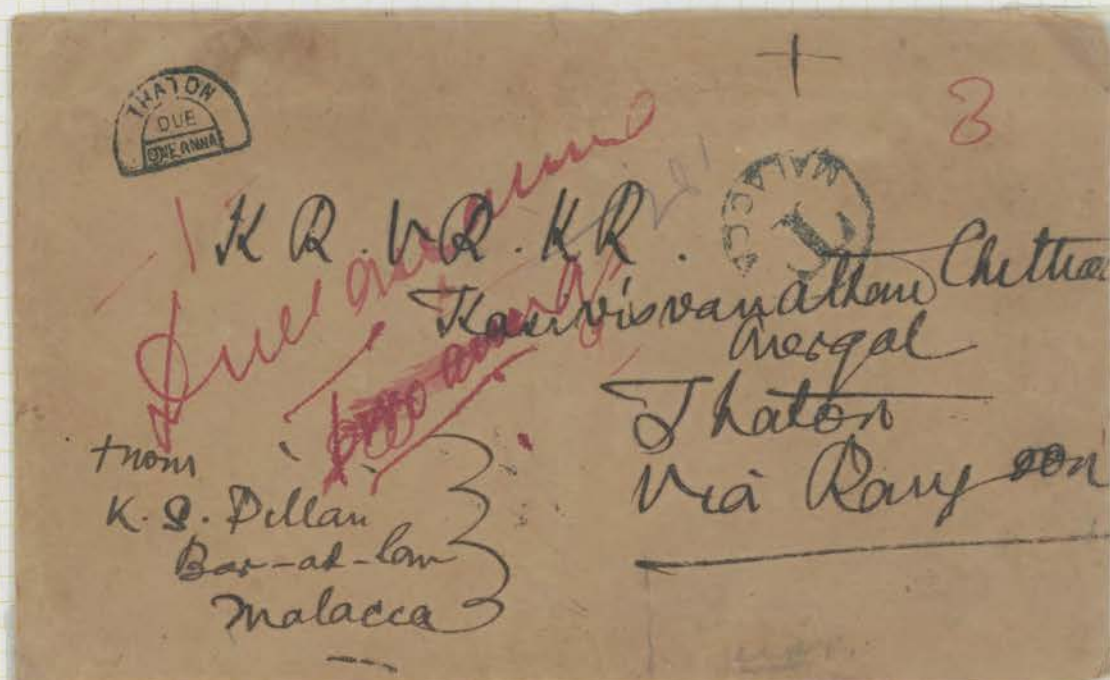 THATON
DUE
ONE ANNA
3
MALACCA
T
Due one anna
K R . V R . K R .
Kasivisvanathan Chettiar
Avergal
Thaton
Via Rangoon
From
K. S. Pillai
Bar-at-law
Malacca